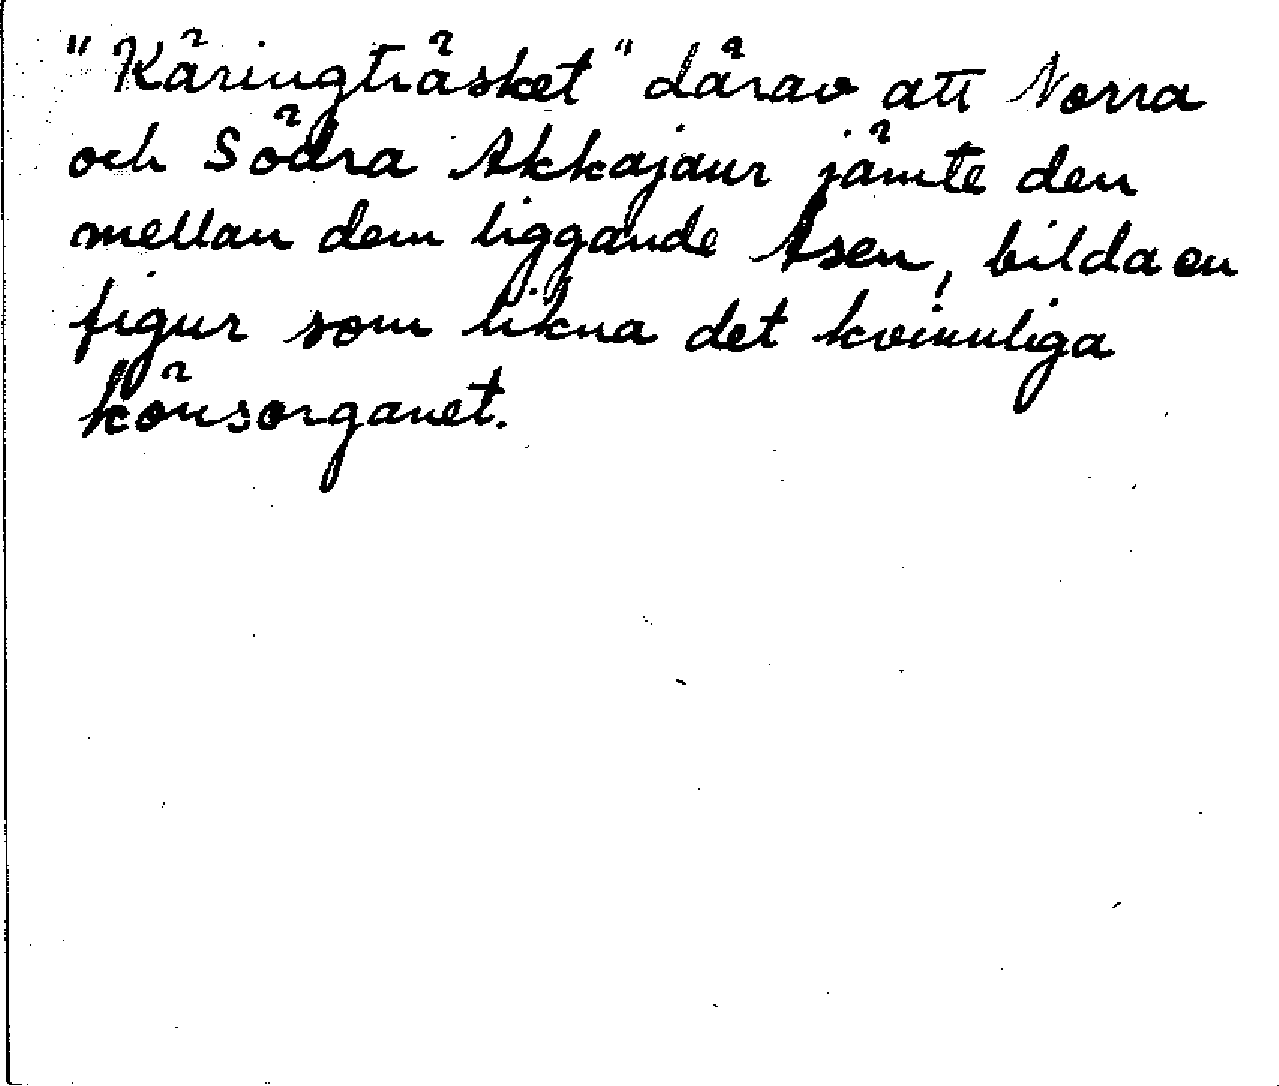 "Käringträsket" därav att Norra
och Södra Akkajaur jämte den
mellan dem liggande Åsen, bilda en
figur som likna det kvinnliga
könsorganet.